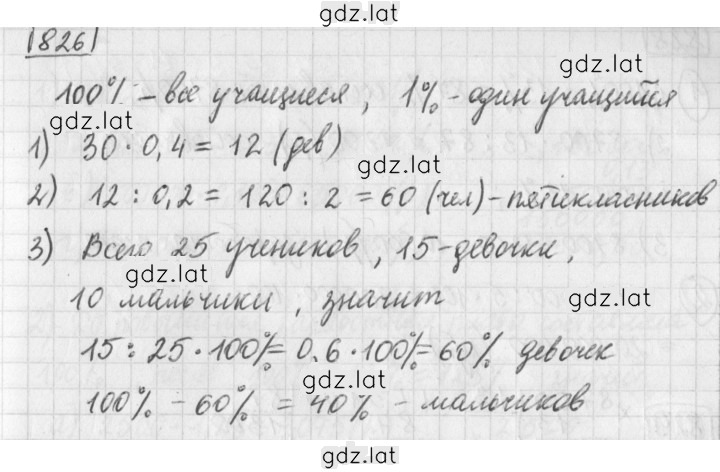 gdz.lat
1826
gdz.lat
100% - все учащиеся, 1% - один учащийся
gdz.lat
1) 30 · 0,4 = 12 (дев)
gdz.lat
2) 12 : 0,2 = 120 : 2 = 60 (чел) - пятикласников
3) Всего 25 учеников, 15 - девочки,
gdz.lat
10 мальчики, значит
gdz.lat
15 : 25 · 100% = 0,6 · 100% = 60% девочек
gdz.lat
100% - 60% = 40% - мальчиков
gdz.lat